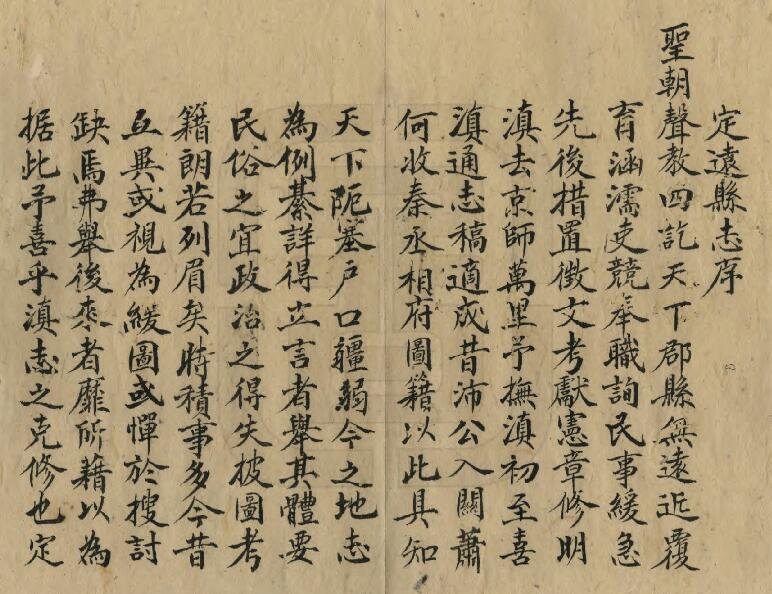 定遠縣志序
聖朝聲教四訖天下郡縣無遠近覆
育涵濡吏競奉職詢民事緩急
先後措置徵文考獻憲章修明
滇去京師萬里予撫滇初至喜
滇通志稿適成昔沛公入關蕭
何收秦丞相府圖籍以此具知
天下阨塞戶口疆弱今之地志
為例綦詳得立言者舉其體要
民俗之宜政治之得失披圖考
籍朗若列眉矣時積事多今昔
互異或視為緩圖或憚於搜討
缺焉弗舉後來者靡所藉以為
据此予喜乎滇志之克修也定